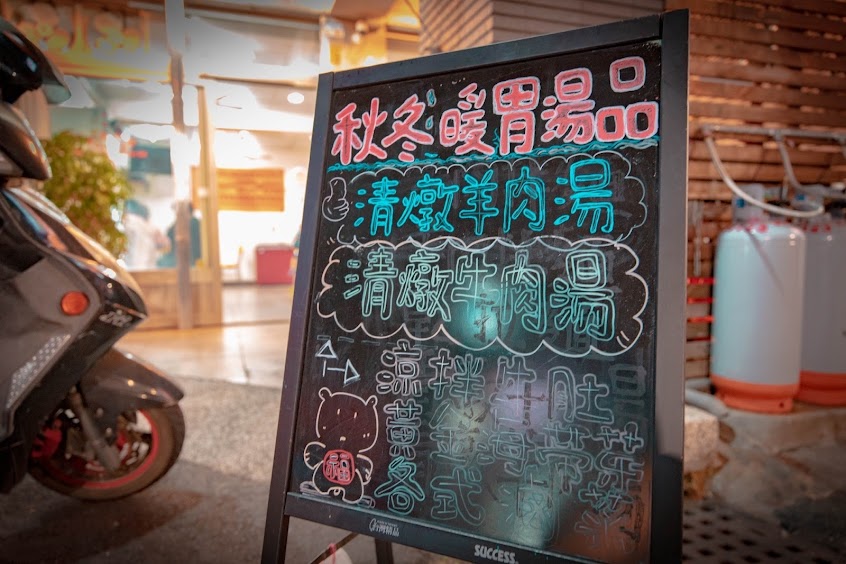 秋冬暖胃湯品
清燉羊肉湯
清燉牛肉湯
涼拌牛肚
海帶芽
各式滷
福
SUCCESS